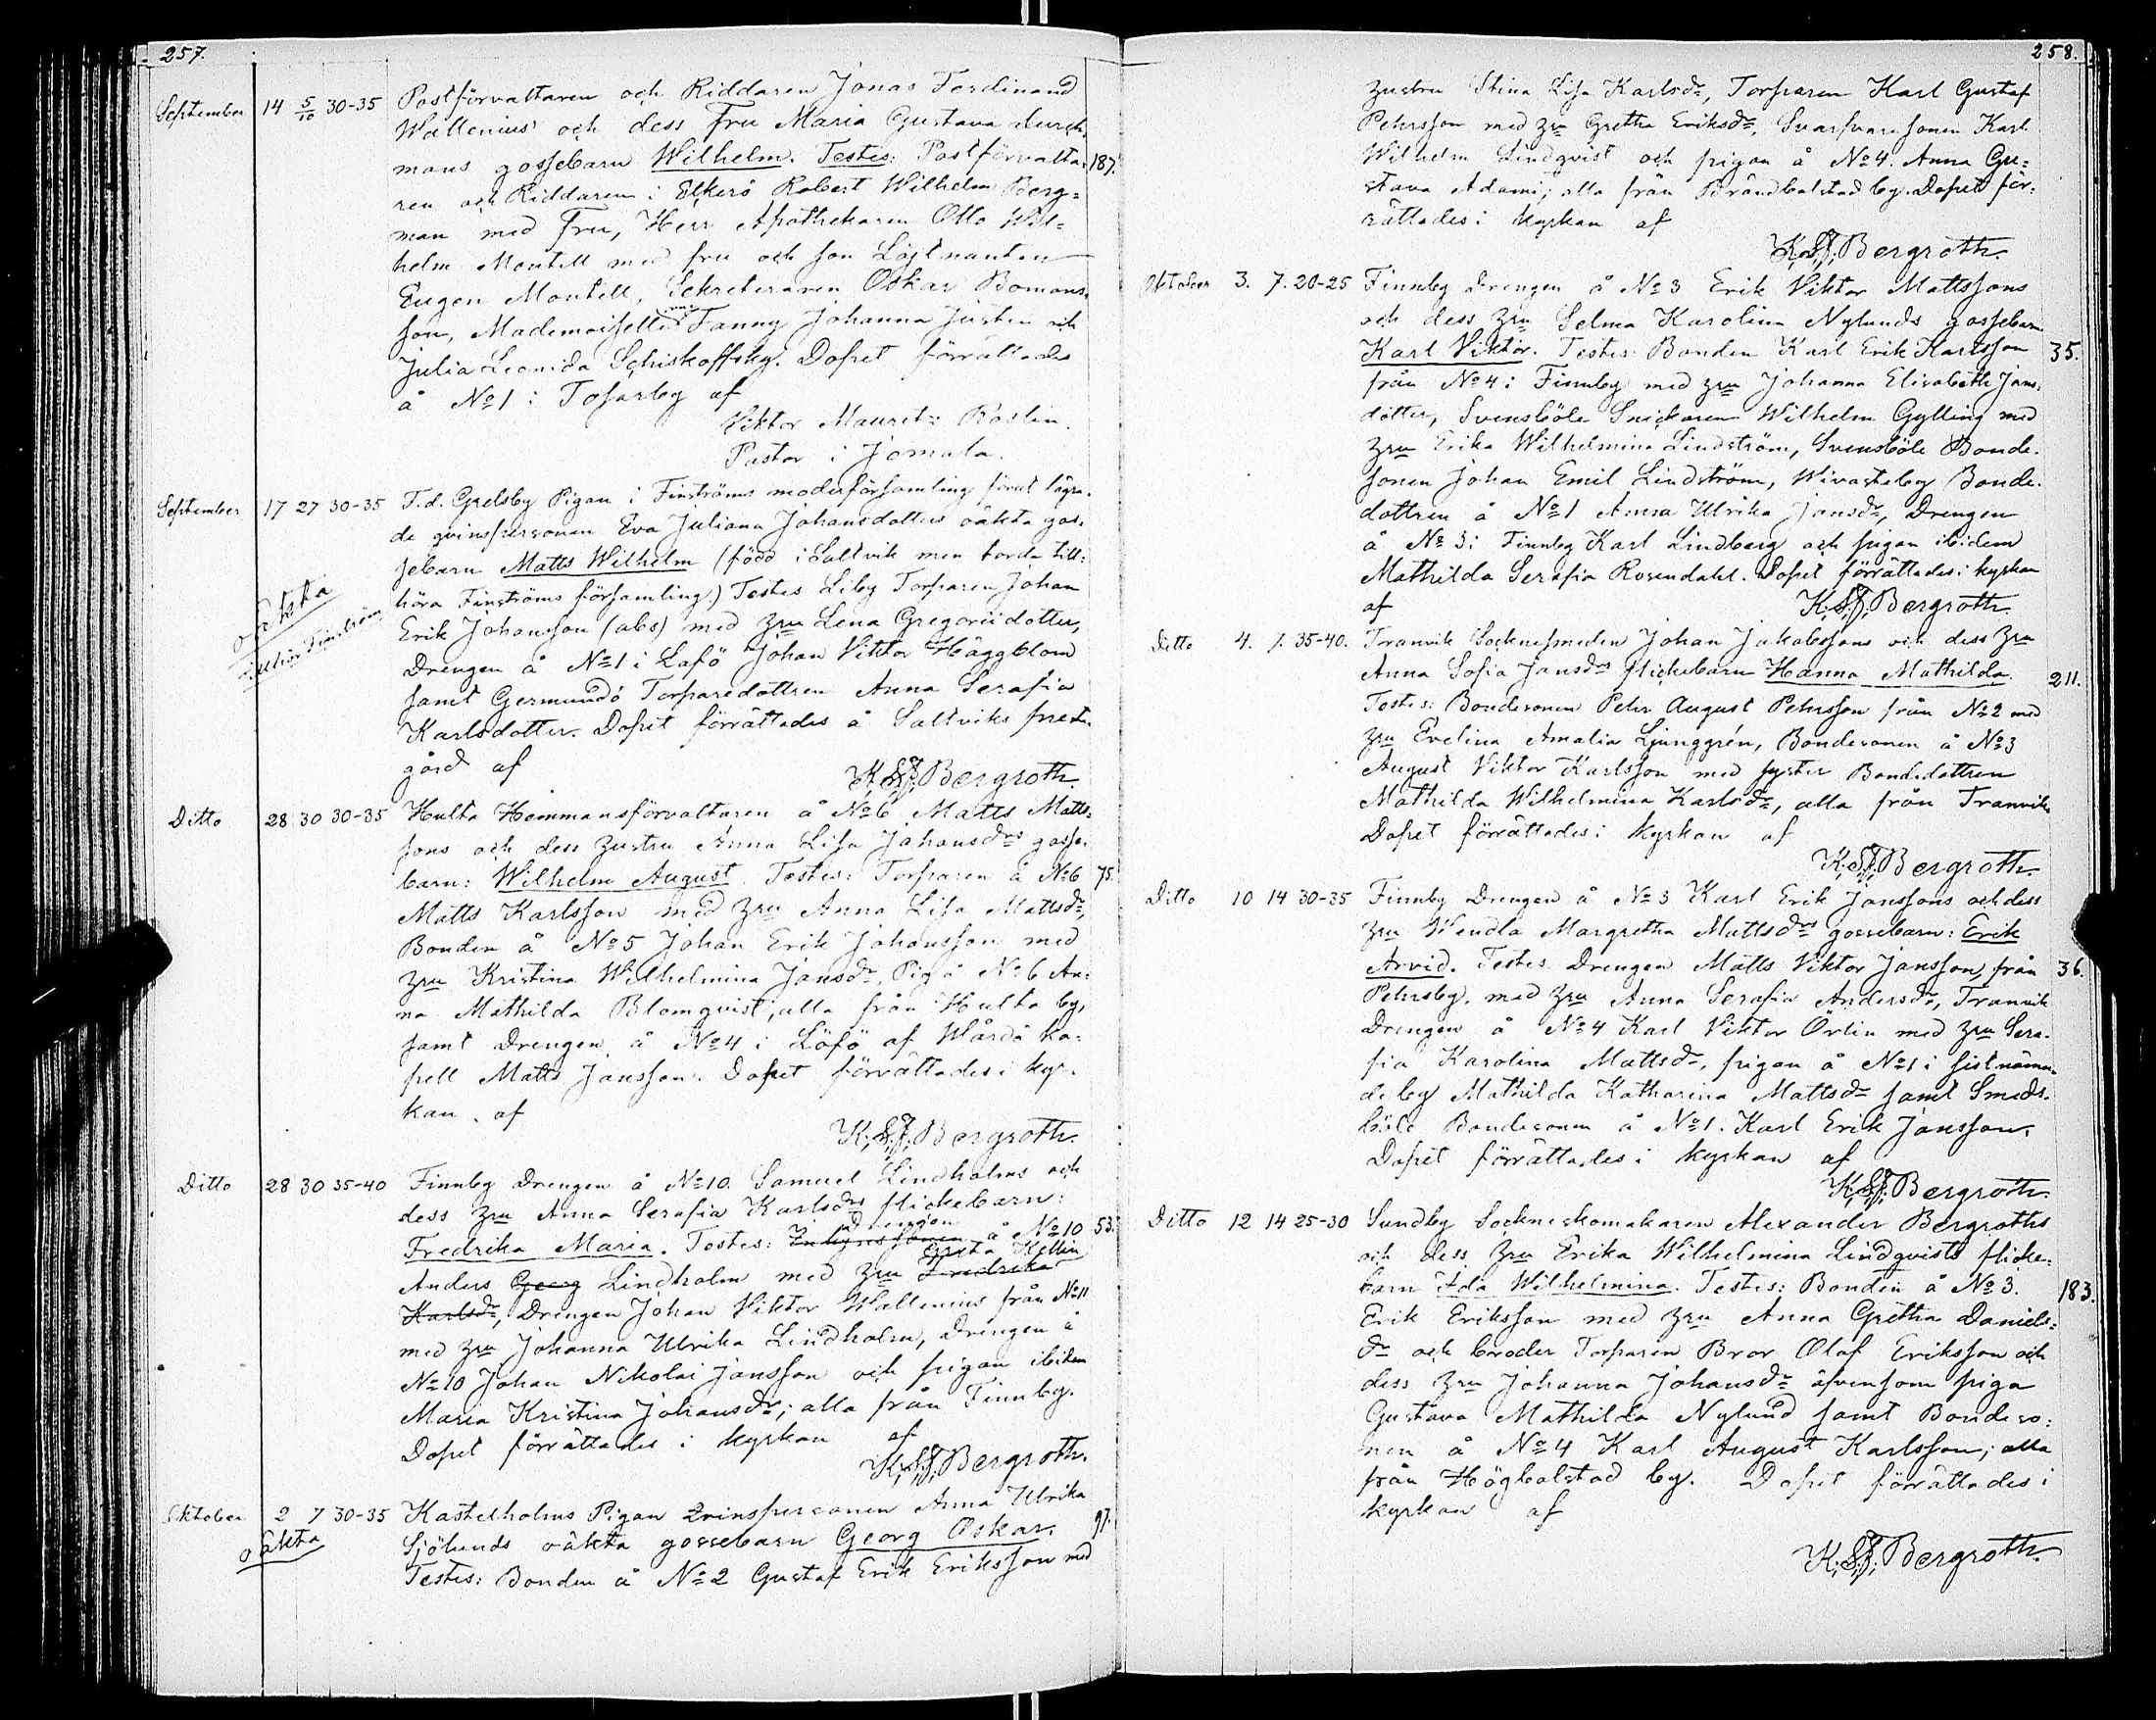 257.
September 14 5/10 30-35 Postförvaltaren och Riddaren Jonas Ferdinand
Wallenius och dess Fru Maria Gustava Durch-
mans gossebarn Wilhelm. Testes: Postförvalta- 187.
ren och Riddaren i Ekkerö Robert Wilhelm Berg=
man med Fru, Herr Apothekaren Otto Wil=
helm Montell med fru och son Löjtnanten
Eugen Montell, Sekreteraren Oskar Bomans-
son, Mademoisellerna Fanny Johanna Justen och
Julia Leonida Schiskoffsky. Dopet förrättades
å No 1 i Tosarby af
Viktor Maurits Roslin.
Pastor i Jomala.
September 17 27 30-35 F.d. Grelsby Pigan i Finströms moderförsamling förut lägra-
de qvinspersonen Eva Juliana Johansdotters oäkta gos-
sebarn Matts Wilhelm (född i Saltvik men torde till=
oäkta
tillhör Finström
höra Finströms församling.) Testes Liby Torparen Johan
Erik Johansson (abs) med Hru Lena Gregoriidotter,
Drengen å No 1 i Lafö Johan Viktor Häggblom
samt Germundö Torparedottren Anna Serafia
Karlsdotter. Dopet förrättades å Saltviks prest-
gård af
K. S. J. Bergroth.
Ditto 28 30 30-35 Hulta Hemmansförvaltaren å No 6 Matts Matts-
sons och dess hustru Anna Lisa Johansdrs gosse-
barn: Wilhelm August. Testes: Torparen å No 6 75.
Matts Karlsson med hru Anna Lisa Mattsdr,
Bonden å No 5 Johan Erik Johansson med
hru Kristina Wilhelmina Jansdr, Pig å No 6 An=
na Mathilda Blomqvist, alla från Hulta by,
samt Drengen å No 4 i Löfö af Wårdö ka=
pell Matts Jansson. Dopet förrättades i kyr-
kan af
K. S. J. Bergroth.
Ditto 28 30 35-40 Finnby Drengen å No 10 Samuel Lindholms och
dess hru Anna Serafia Karlsdrs flickebarn:
Drengen
Fredrika Maria. Testes: å No 10 53.
Greta Kellin
Anders Georg Lindholm med hru Fredrika
Karlsdr, Drengen Johan Viktor Wallenius från No 11
med hru Johanna Ulrika Lindholm, Drengen å
No 10 Johan Nikolai Jansson och pigan ibidem
Maria Kristina Johansdr; alla från Finnby.
Dopet förrättades i kyrkan af
K. S. J. Bergroth.
Oktober 2 7 30-35 Kastelholms Pigan Qvinspersonen Anna Ulrika
oäkta
Sjölunds oäkta gossebarn Georg Oskar. 97.
Testes: Bonden å No 2 Gustaf Erik Eriksson med
258.
hustru Stina Lisa Karlsdr, Torparen Karl Gustaf
Pehrsson med hru Gretha Eriksdr, Svarfvaresonen Karl
Wilhelm Lindqvist och pigan å No 4. Anna Gu=
stava Adami; alla från Brändbolstad by. Dopet för=
rättades i kyrkan af
K. S. J. Bergroth.
Oktober 3. 7. 20-25 Finnby Drengen å No 3 Erik Viktor Mattssons
och dess hru Selma Karolina Nylunds gossebarn
Karl Viktor. Testes: Bonden Karl Erik Karlsson 35.
från No 4 i Finnby med hru Johanna Elisabeth Jans-
dotter, Svensböle Snickaren Wilhelm Gylling med
hru Erika Wilhelmina Lindström, Svensböle Bonde-
sonen Johan Emil Lindström, Wivasteby Bonde-
dottren å No 1 Anna Ulrika Jansdr, Drengen
å No 3 i Finnby Karl Lindberg och pigan ibidem
Mathilda Serafia Rosendahl. Dopet förrättades i kyrkan
af K. S. J. Bergroth.
Ditto 4. 7. 35-40. Tranvik Socknesmeden Johan Jakobssons och dess hru
Anna Sofia Jansdrs flickebarn Hanna Mathilda. 211.
Testes: Bondesonen Pehr August Pehrsson från No 2 med
hru Evelina Amalia Ljunggrén, Bondesonen å No 3
August Viktor Karlsson med syster Bondedottren
Mathilda Wilhelmina Karlsdr, alla från Tranvik.
Dopet förrättades i kyrkan af
K. S. J. Bergroth.
Ditto 10 14 30-35 Finnby Drengen å No 3 Karl Erik Janssons och dess
hru Wendla Margretha Mattsdrs gossebarn: Erik
Arvid. Testes Drengen Matts Viktor Jansson från 36.
Pehrsby. med hru Anna Serafia Andersdr, Tranvik
Drengen å No 4 Karl Viktor Örlin med hru Sera-
fia Karolina Mattsdr, pigan å No 1 i sistnämn-
de by Mathilda Katharina Mattsdr samt Smeds-
böle Bondesonen å No 1. Karl Erik Jansson.
Dopet förrättades i kyrkan af
K. S. J. Bergroth.
Ditto 12 14 25-30 Sundby Sockneskomakaren Alexander Bergroths
och dess hru Erika Wilhelmina Lindqvists flicke-
barn Ida Wilhelmina. Testes: Bonden å No 3. 183.
Erik Eriksson med hru Anna Gretha Daniels=
dr och broder Torparen Bror Olof Eriksson och
dess hru Johanna Johansdr äfvensom piga
Gustava Mathilda Nylund samt Bondeso=
nen å No 4 Karl August Karlsson; alla
från Högbolstad by. Dopet förrättades i
kyrkan af
K. S. J. Bergroth.